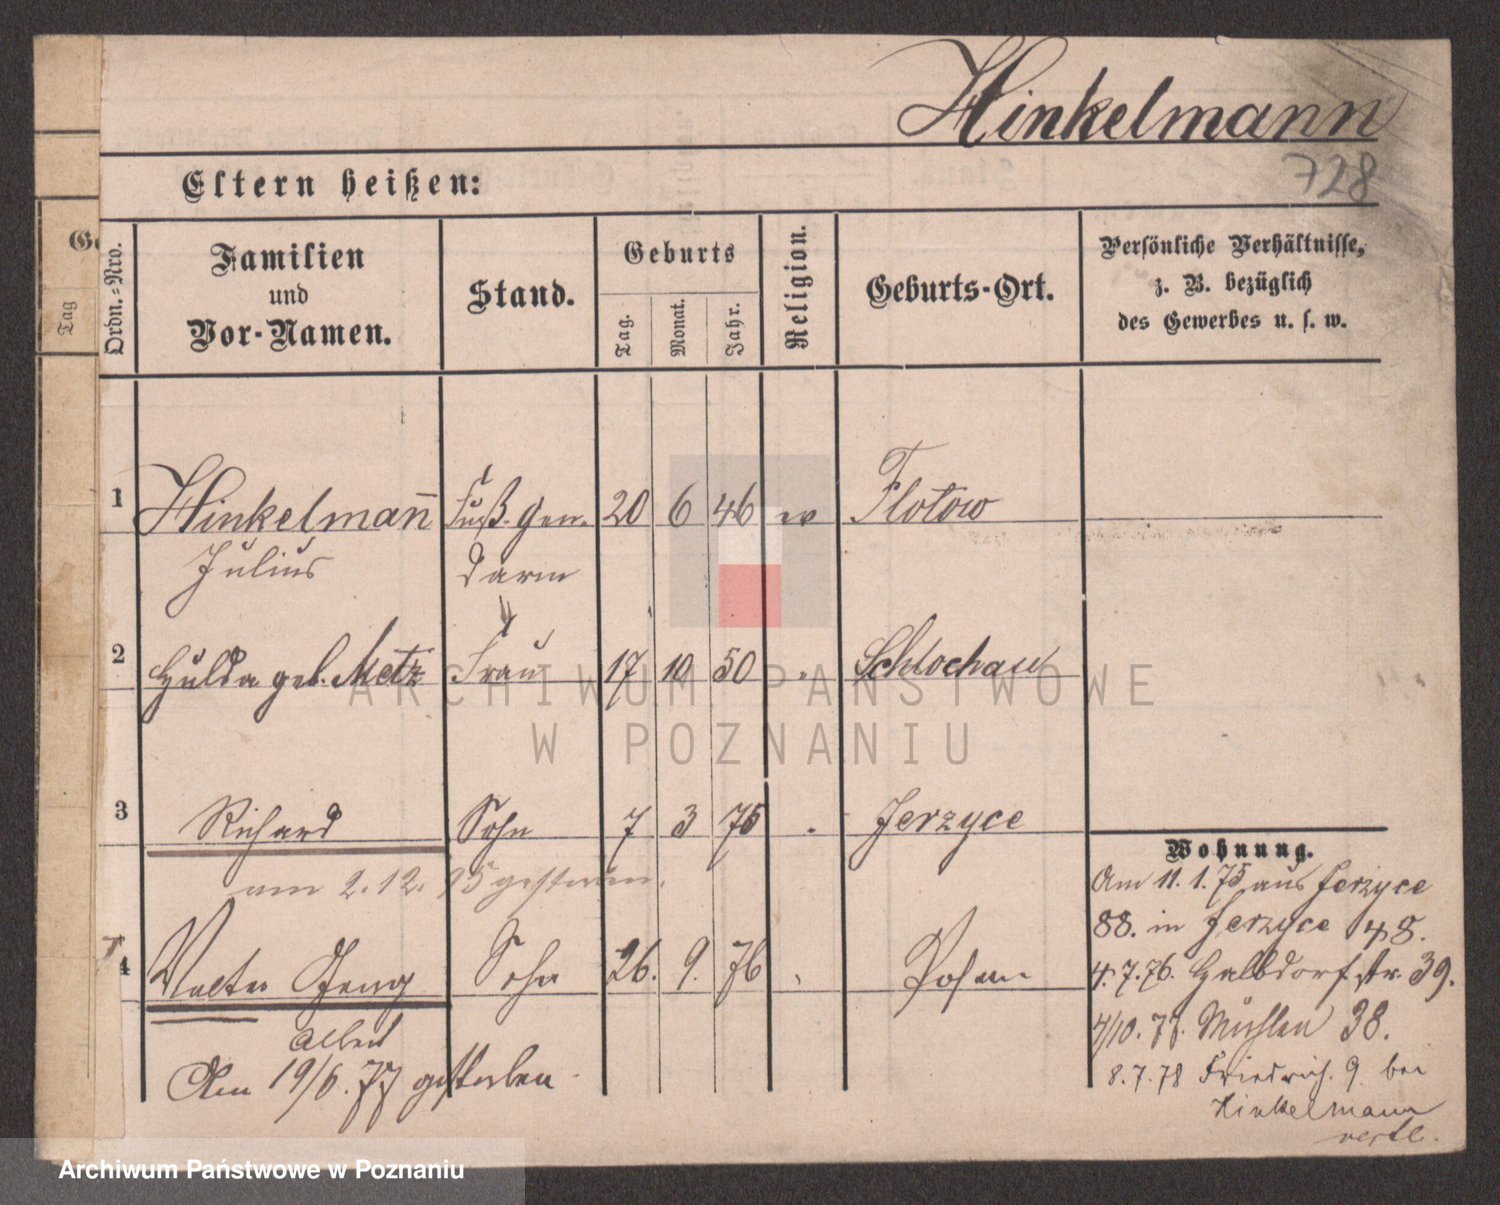 Hinkelmann
728
Eltern heißen:
Ge
Tag
Ordn.-Nro.
Familien und Vor-Namen.
Stand.
Geburts
Tag.
Monat.
Jahr.
Religion.
Geburts-Ort.
Persönliche Verhältnisse,
z. B. bezüglich
des Gewerbes u. s. w.
1 Hinkelmañ Fuß-Gen- 20 6 46 ev Flotow
Julius darm
2 Hulda geb. Metz Frau 17 10 50 " Schlochau
3 Richard Sohn 7 3 75 " Jerzyce
am 2.12. 75 gestorben.
4 Walter Georg Sohn 26. 9. 76 " Posen
Albert
Am 19/6.77 gestorben
Wohnung.
Am 11.1.75 aus Jerzyce
88. in Jerzyce 48.
4.7.76. Halbdorfstr. 39.
4/10.77. Mühlen 38.
8.7.78 Friedrich. 9 bei
Hinkelmann
ARCHIWUM PAŃSTWOWE
W POZNANIU
Archiwum Państwowe w Poznaniu